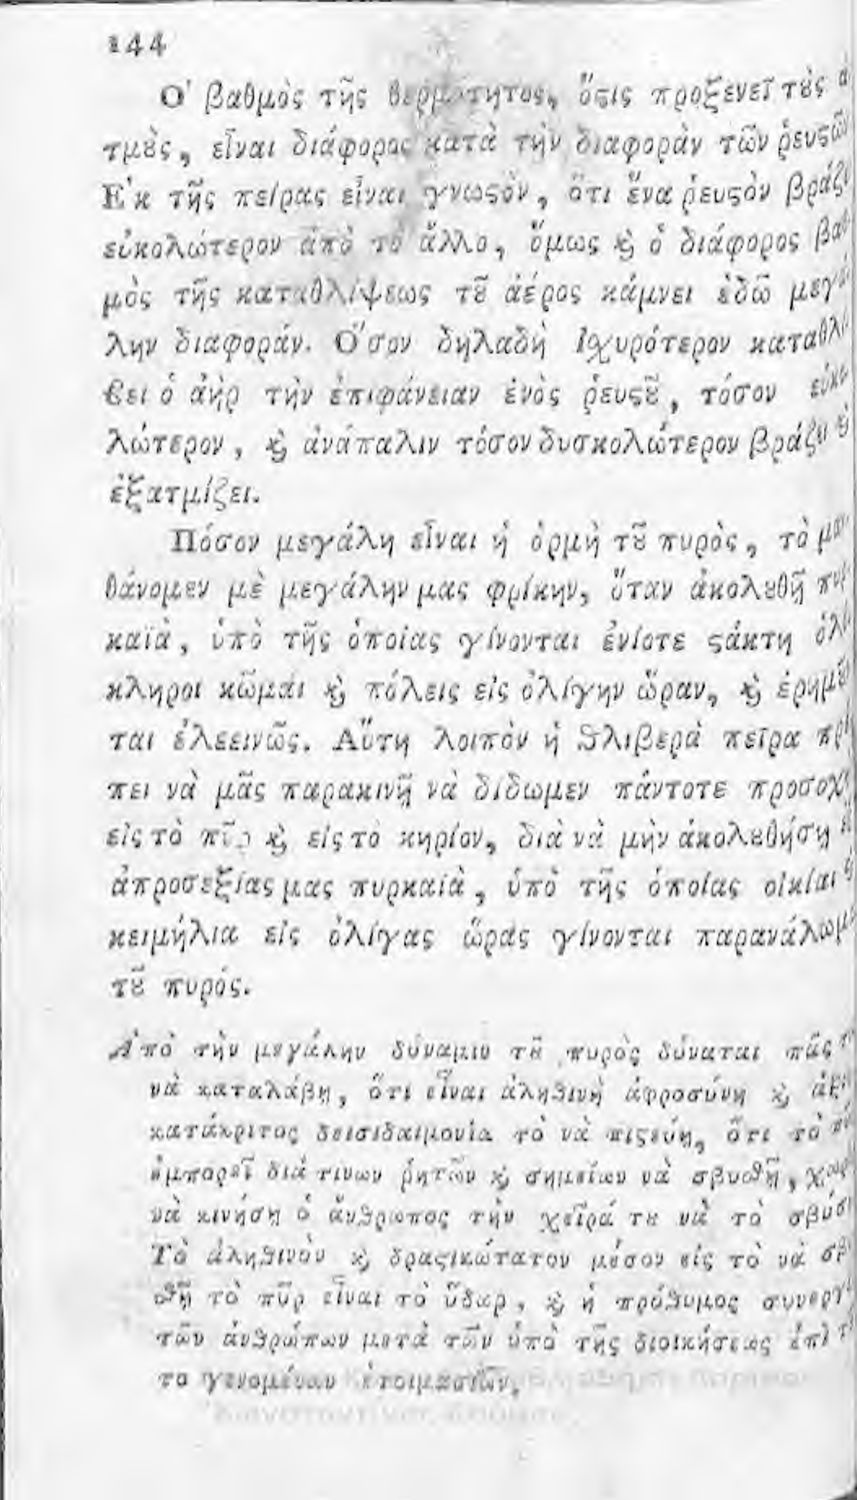 144
Ὁ βαθμὸς τῆς θερμότητος, ὅϛις προξενεῖ τȣ̀ς ἀ
τμȣ̀ς, εἶναι διάφορος κατὰ τὴν διαφορὰν τῶν ῥευϛῶν
Ἐκ τῆς πείρας εἶναι γνωϛὸν, ὅτι ἕνα ῥευϛὸν βράζει
εὐκολώτερον ἀπὸ τὸ ἄλλο, ὅμως ϗ ὁ διάφορος βαθ
μὸς τῆς καταθλίψεως τȣ͂ ἀέρος κάμνει ἐδῶ μεγά
λην διαφοράν. Ὅσον δηλαδὴ ἰσχυρότερον καταθλί
βει ὁ ἀὴρ τὴν ἐπιφάνειαν ἑνὸς ῥευϛȣ͂, τόσον εὐκο
λώτερον, ϗ ἀνάπαλιν τόσον δυσκολώτερον βράζει
ἐξατμίζει.
Πόσον μεγάλη εἶναι ἡ ὁρμὴ τȣ͂ πυρὸς, τὸ μαν
θάνομεν μὲ μεγάλην μας φρίκην, ὅταν ἀκολȣθῇ πυρ
καϊὰ, ὑπὸ τῆς ὁποίας γίνονται ἐνίοτε ϛάκτη ὁλό
κληροι κῶμαι ϗ πόλεις εἰς ὀλίγην ὥραν, ϗ ἐρημῶν
ται ἐλεεινῶς. Αὕτη λοιπὸν ἡ θλιβερὰ πεῖρα πρέ
πει νὰ μᾶς παρακινῇ νὰ δίδωμεν πάντοτε προσοχὴ
εἰς τὸ πῦρ ϗ εἰς τὸ κηρίον, διὰ νὰ μὴν ἀκολȣθήσῃ
ἀπροσεξίας μας πυρκαϊὰ, ὑπὸ τῆς ὁποίας οἰκίαι
κειμήλια εἰς ὀλίγας ὥρας γίνονται παρανάλωμα
τȣ͂ πυρός.
Ἀπὸ τὴν μεγάλην δύναμιν τȣ͂ πυρὸς δύναται πᾶς
νὰ καταλάβῃ, ὅτι εἶναι ἀληθινὴ ἀφροσύνη ϗ ἀξιο
κατάκριτος δεισιδαιμονία τὸ νὰ πιϛεύῃ, ὅτι τὸ πῦ
ἐμπορεῖ διά τινων ῥητῶν ϗ σημείων νὰ σβυσθῇ, χωρὶ
νὰ κινήσῃ ὁ ἄνθρωπος τὴν χεῖρά τȣ νὰ τὸ σβύσῃ
Τὸ ἀληθινὸν ϗ δραϛικώτατον μέσον εἰς τὸ νὰ σβυ
σθῇ τὸ πῦρ εἶναι τὸ ὕδωρ, ϗ ἡ πρόθυμος συνεργί
τῶν ἀνθρώπων μετὰ τῶν ὑπὸ τῆς διοικήσεως ἐπὶ τ
το γενομένων ἑτοιμασιῶν.